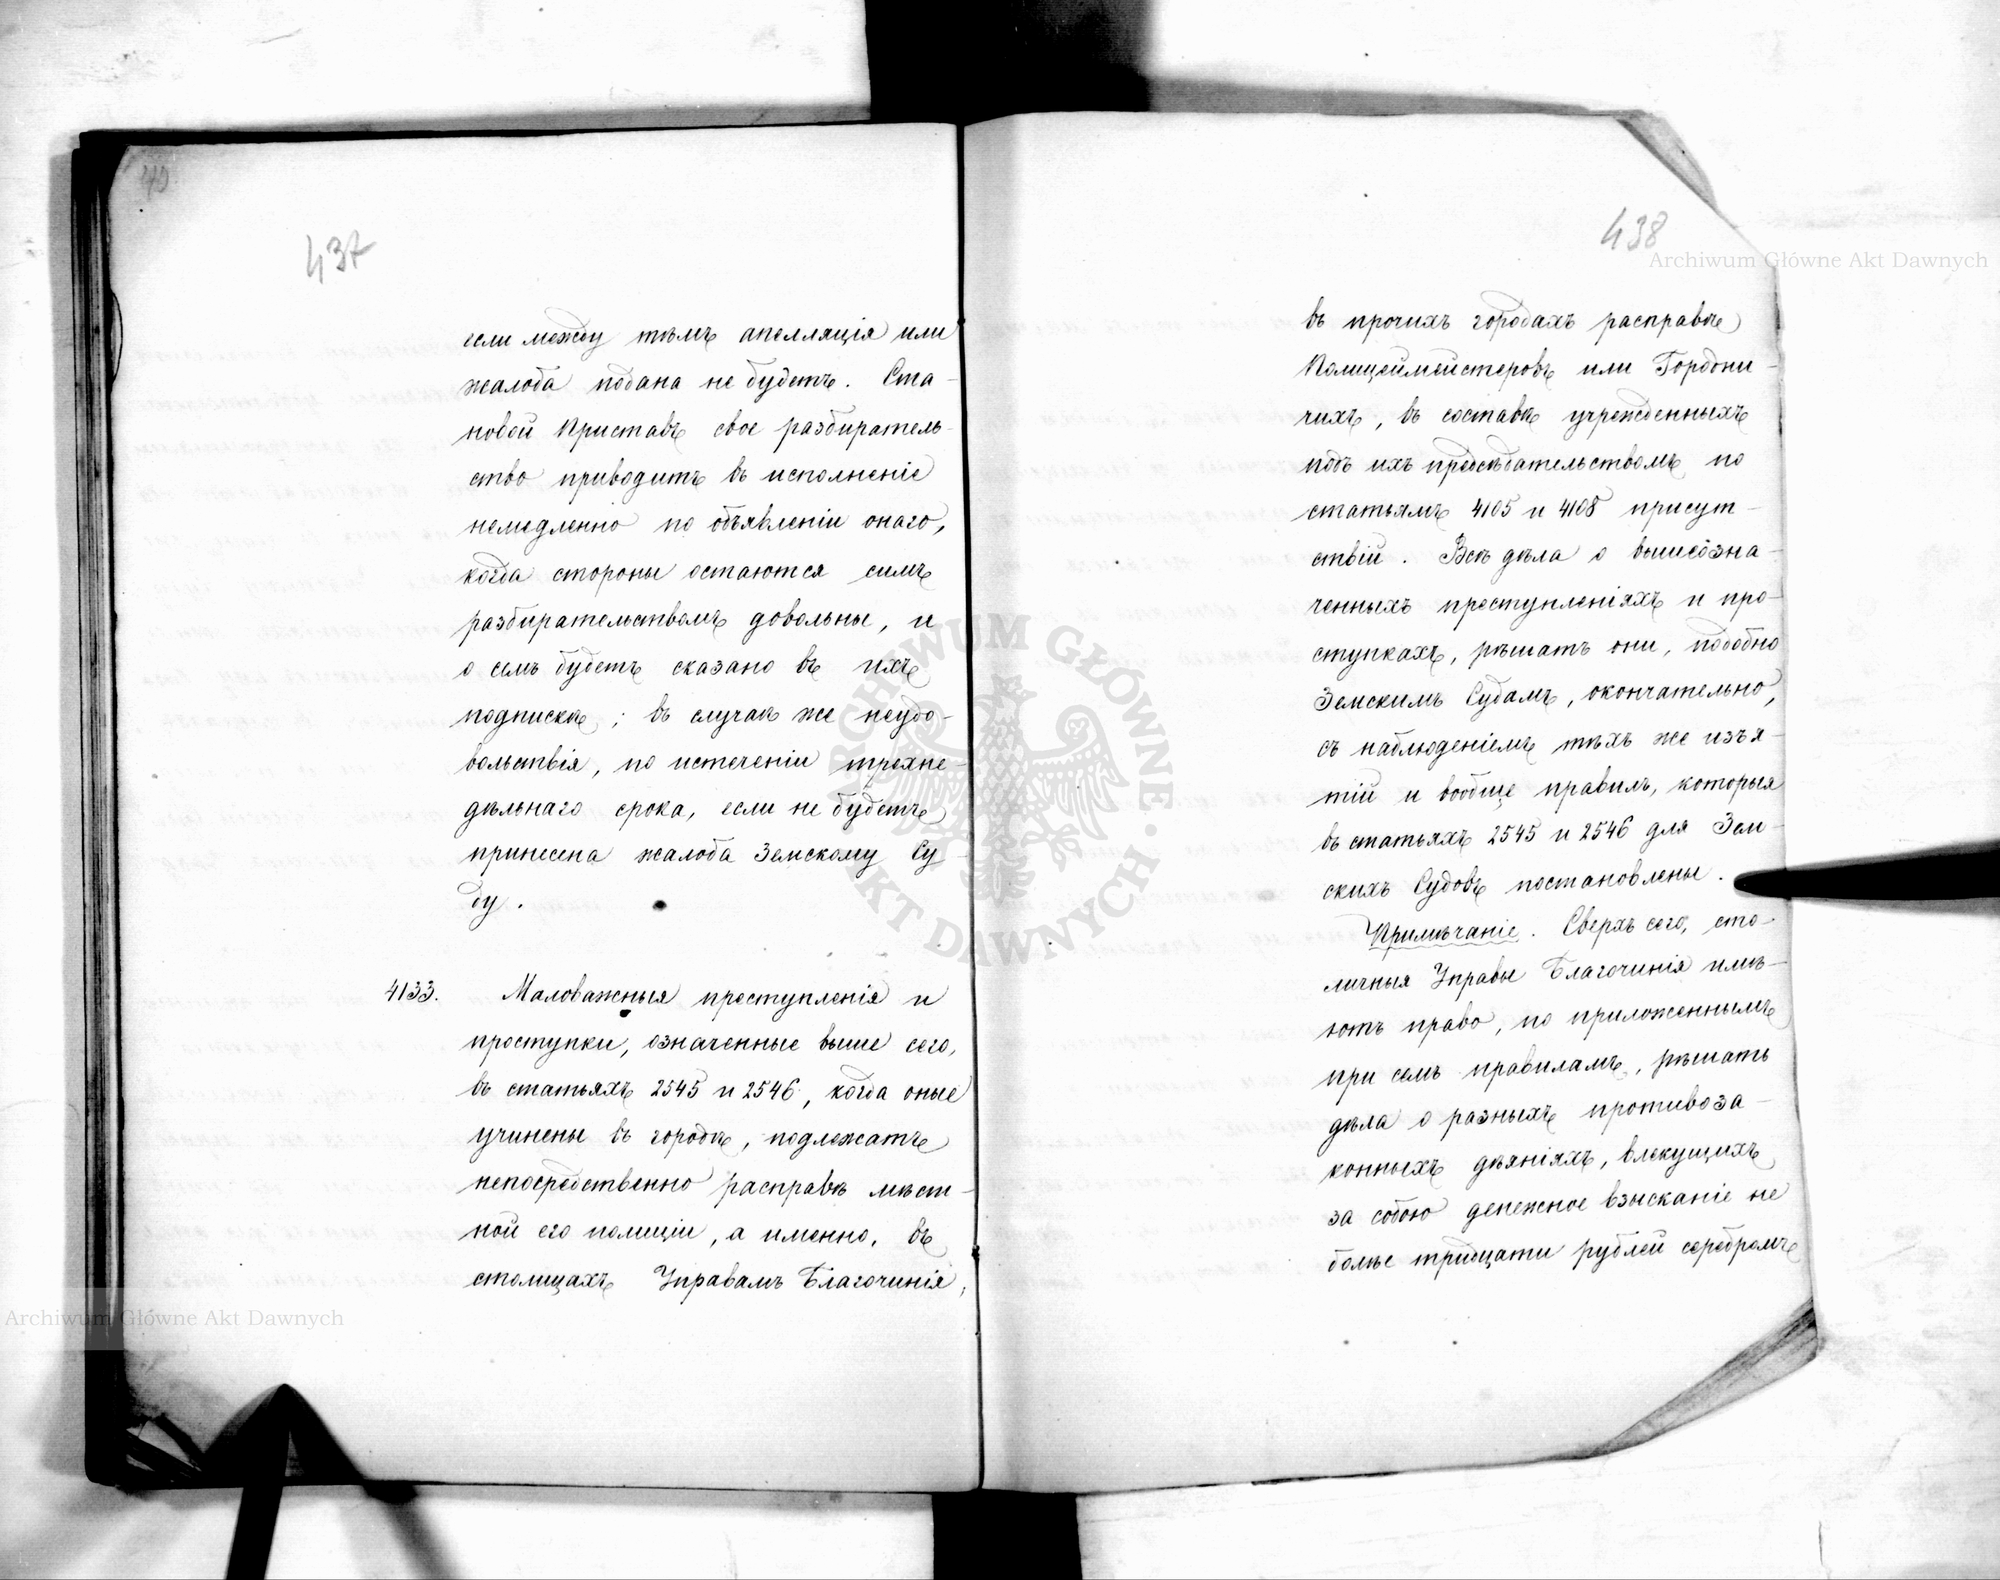 40
437
если между тѣмъ апелляція или
жалоба подана не будетъ. Ста-
новой Приставъ свое разбиратель-
ство приводитъ въ исполненіе
немедленно по объявленіи онаго,
когда стороны остаются симъ
разбирательствомъ довольны, и
о семъ будетъ сказано въ ихъ
подпискѣ; въ случаѣ же неудо-
вольствія, по истеченіи трехне-
дѣльнаго срока, если не будетъ
принесена жалоба Земскому Су-
ду.
4133. Маловажныя преступленія и
проступки, означенные выше сего,
въ статьяхъ 2545 и 2546, когда оные
учинены въ городѣ, подлежатъ
непосредственно расправѣ мѣст-
ной его полиціи, а именно, въ
столицахъ Управамъ Благочинія,
438
въ прочихъ городахъ расправѣ
Полицеймейстеровъ или Городни-
чихъ, въ составѣ учрежденныхъ
подъ ихъ предсѣдательствомъ по
статьямъ 4105 и 4108 присут-
ствій. Всѣ дѣла о вышеозна-
ченныхъ преступленіяхъ и про-
ступкахъ, рѣшатъ они, подобно
Земскимъ Судамъ, окончательно,
съ наблюденіемъ тѣхъ же изъя-
тій и вообще правилъ, которыя
въ статьяхъ 2545 и 2546 для Зем-
скихъ Судовъ постановлены.
Примѣчаніе. Сверхъ сего, сто-
личныя Управы Благочинія имѣ-
ютъ право, по приложеннымъ
при семъ правиламъ, рѣшать
дѣла о разныхъ противоза-
конныхъ дѣяніяхъ, влекущихъ
за собою денежное взысканіе не
болѣе тридцати рублей серебромъ
Archiwum Główne Akt Dawnych
Archiwum Główne Akt Dawnych
ARCHIWUM GŁÓWNE AKT DAWNYCH